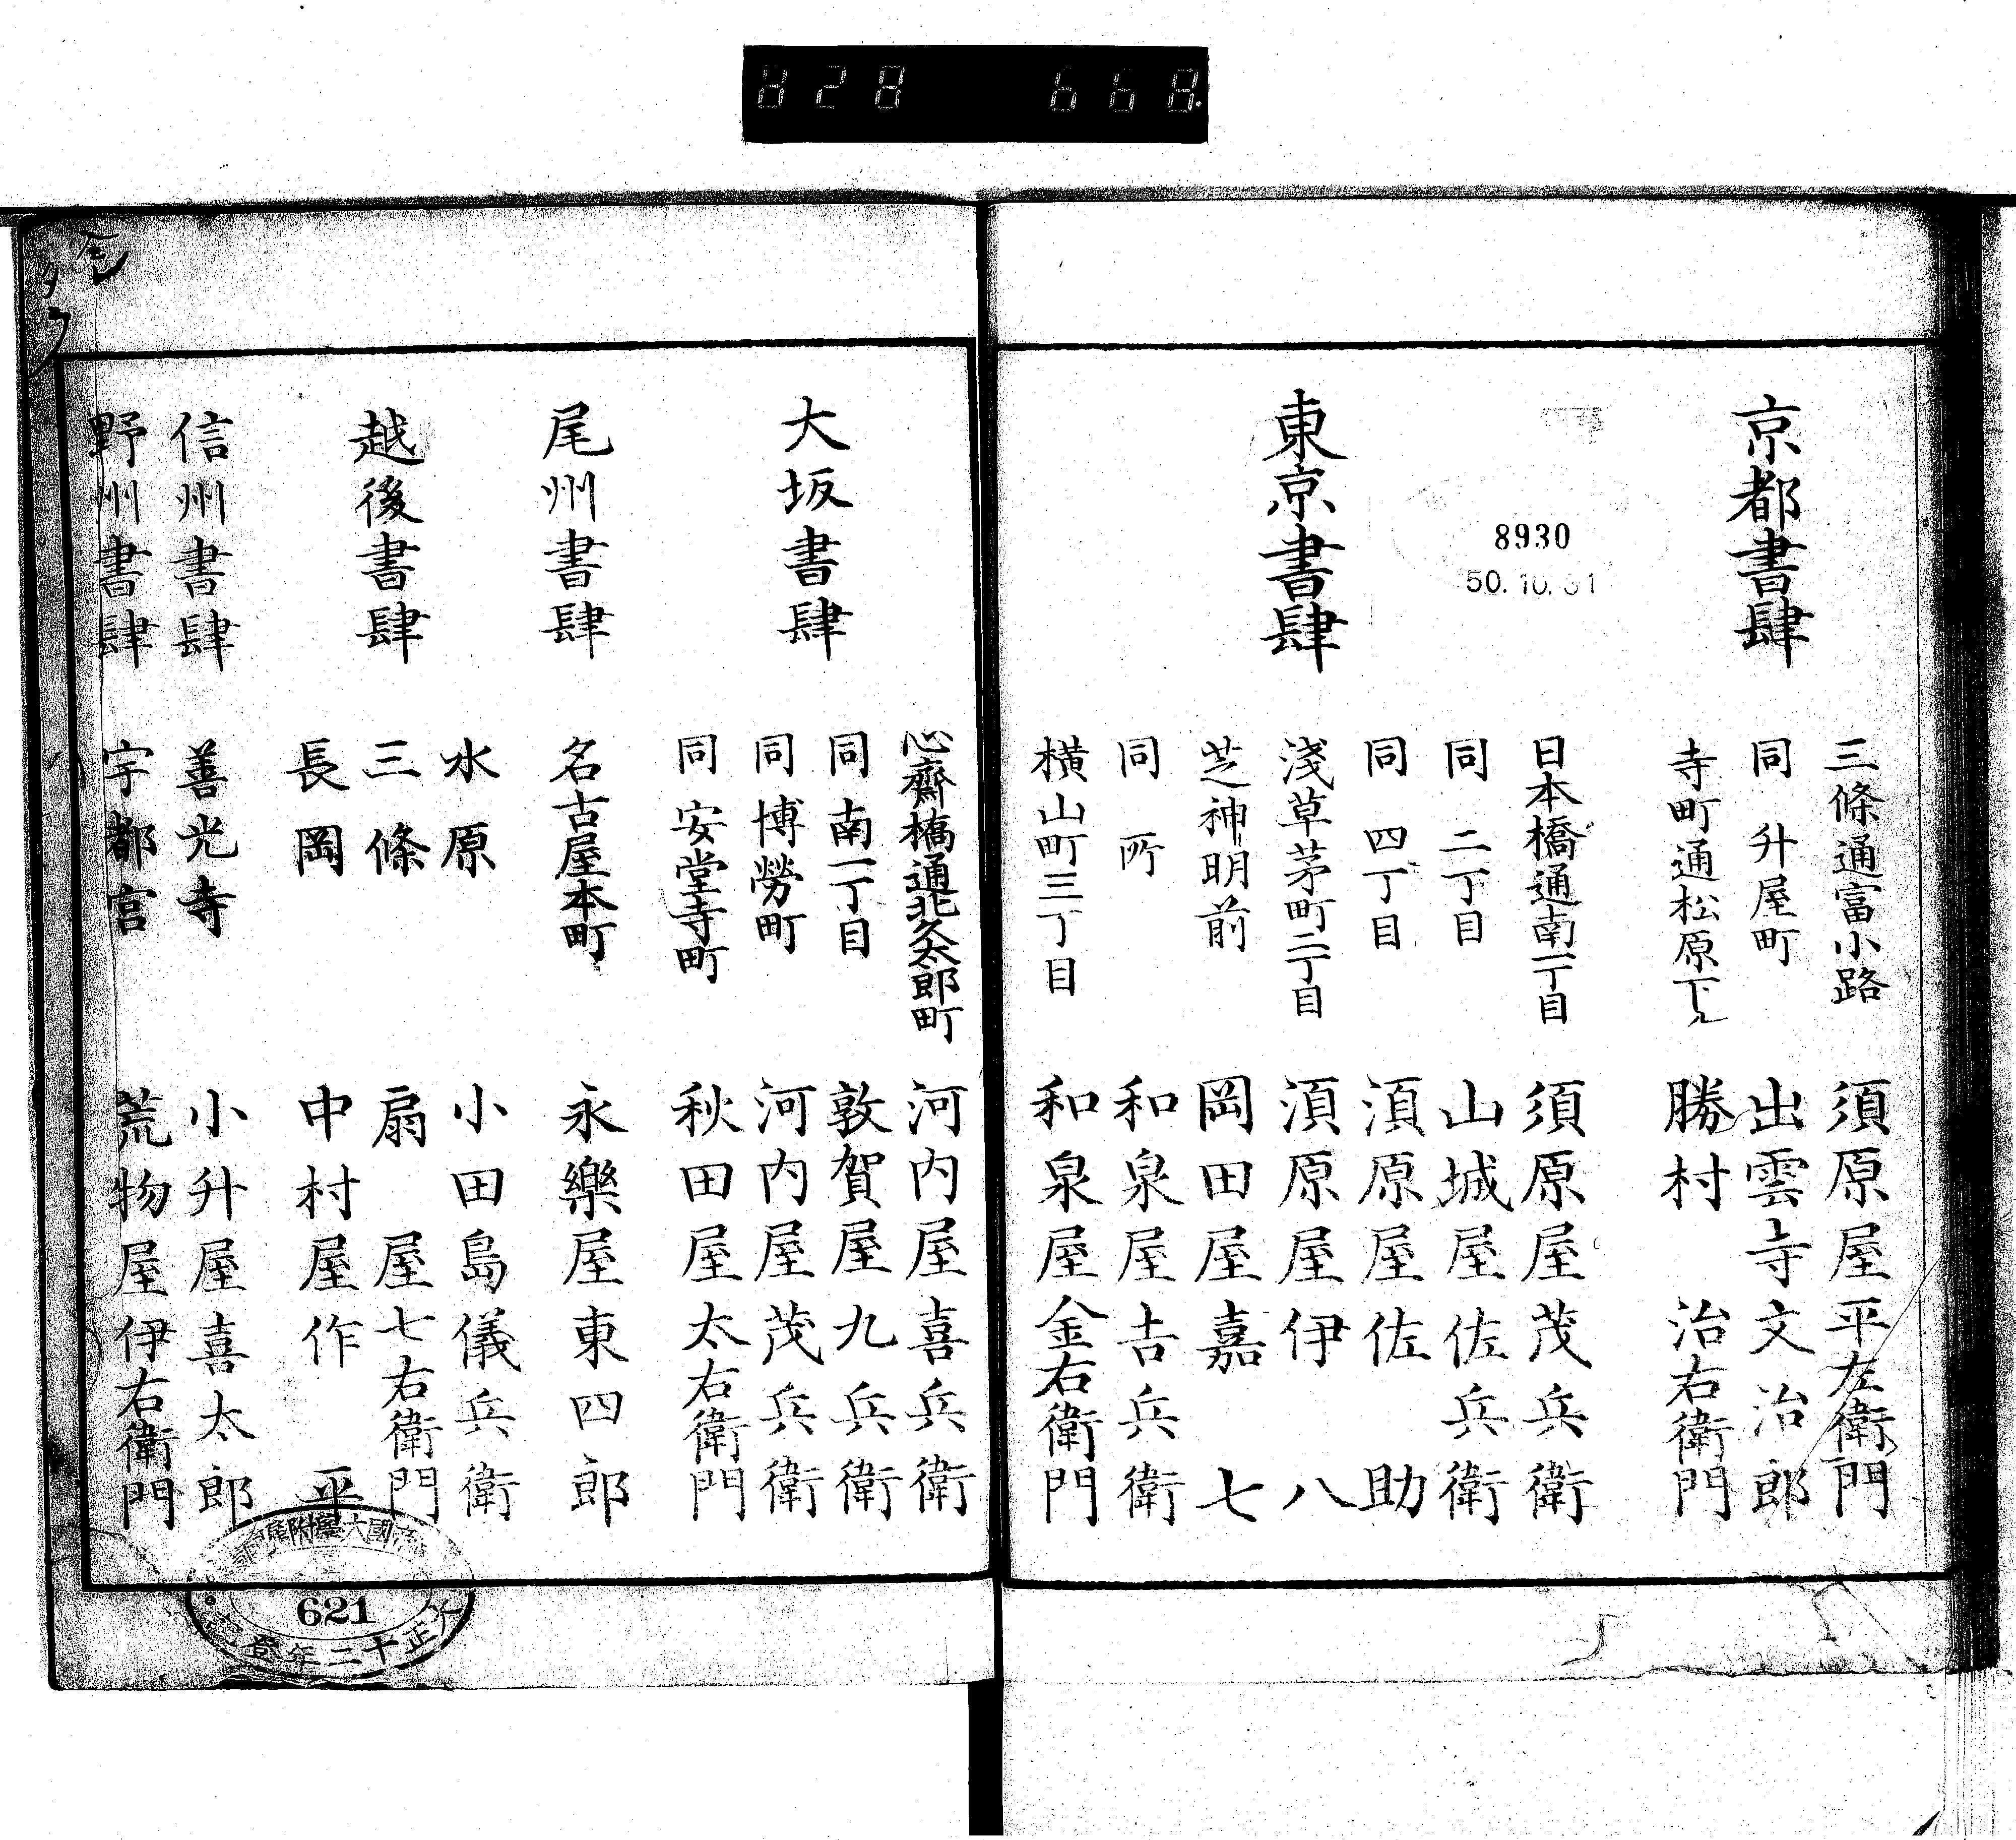 828 668.
京都書肆
三條通富小路 須原屋平左衛門
同 升屋町 出雲寺文治郎
寺町通松原下ル 勝村 治右衛門
8930
50.10.31
東京書肆
日本橋通南一丁目 須原屋茂兵衛
同 二丁目 山城屋佐兵衛
同 四丁目 須原屋佐 助
淺草茅町二丁目 須原屋伊 八
芝神明前 岡田屋嘉 七
同 所 和泉屋吉兵衛
横山町三丁目 和泉屋金右衛門
大坂書肆
心齋橋通北久太郎町 河内屋喜兵衛
同 南一丁目 敦賀屋九兵衛
同 博勞町 河内屋茂兵衛
同 安堂寺町 秋田屋太右衛門
尾州書肆
名古屋本町 永樂屋東四郎
越後書肆
水原 小田島儀兵衛
三條 扇 屋七右衛門
長岡 中村屋作 平
信州書肆 善光寺 小升屋喜太郎
野州書肆 宇都宮 荒物屋伊右衛門
621
大正十二年登